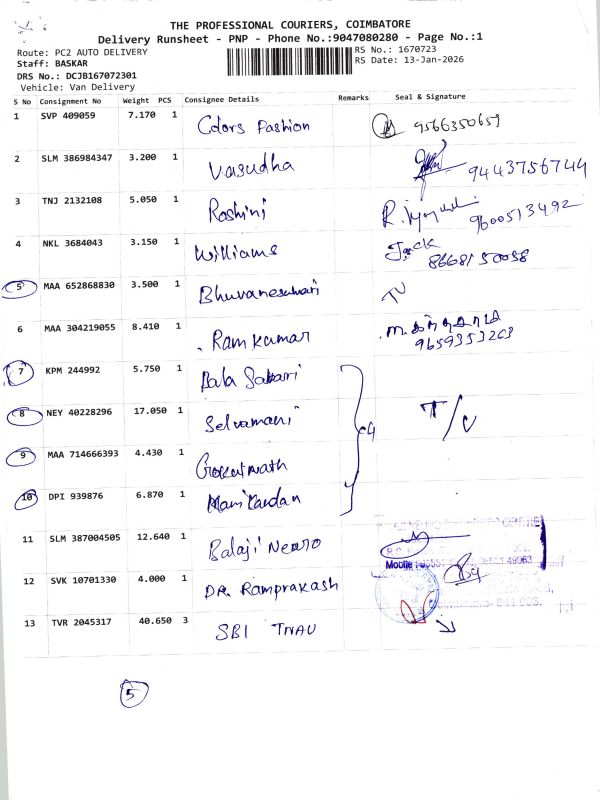 THE PROFESSIONAL COURIERS, COIMBATORE
Delivery Runsheet - PNP - Phone No.:9047080280 - Page No.:1
Route: PC2 AUTO DELIVERY
RS No.: 1670723
Staff: BASKAR
RS Date: 13-Jan-2026
DRS No.: DCJB167072301
Vehicle: Van Delivery
S No Consignment No Weight PCS Consignee Details Remarks Seal & Signature
1 SVP 409059 7.170 1 Colors Fashion 9566350659
2 SLM 386984347 3.200 1 Vasudha 9443756744
3 TNJ 2132108 5.050 1 Roshini R. 9600513492
4 NKL 3684043 3.150 1 Williams Jack
8668150058
5 MAA 652868830 3.500 1 Bhuvaneshwari
6 MAA 304219055 8.410 1 Ram kumar
9659353263
7 KPM 244992 5.750 1 Bala
8 NEY 40228296 17.050 1 Selvamani T/V
9 MAA 714666393 4.430 1 Gokulnath
10 DPI 939876 6.870 1 Manikandan
11 SLM 387004505 12.640 1 Balaji Neuro
Mobile
12 SVK 10701330 4.000 1 DR. Ramprakash
13 TVR 2045317 40.650 3 SBI TNAU
5